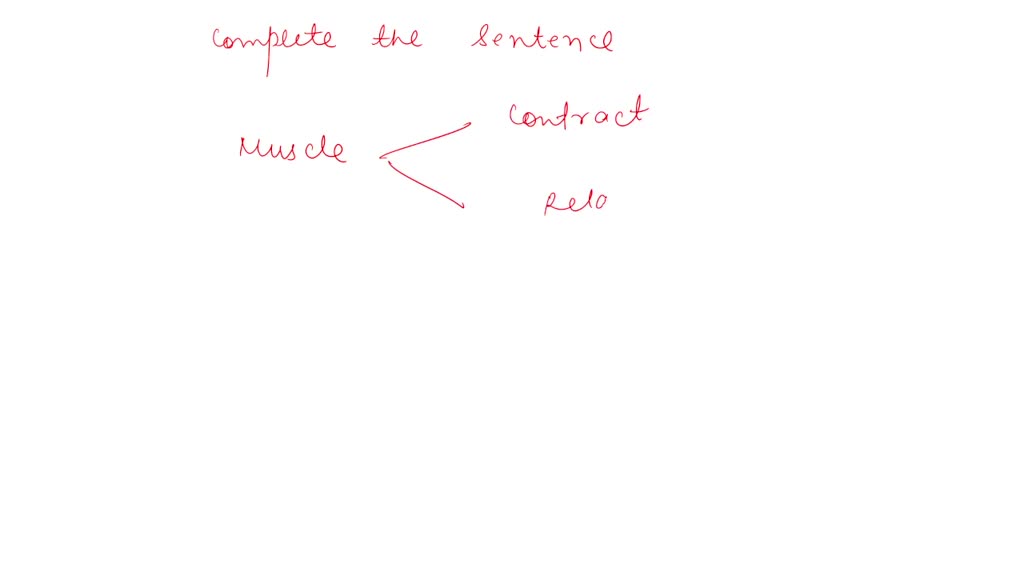 complete the sentence
Contract
Muscle
Rela